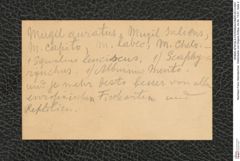 Mugil auratus, Mugil saliens,
M. Capito, M. labeo, M. Chelo.
1 Squalius leuciscus, 1 Scaphy-
rynchus. 1 Alburnus Mento
und je mehr desto besser von allen
europäischen Fischarten und
Reptilien.